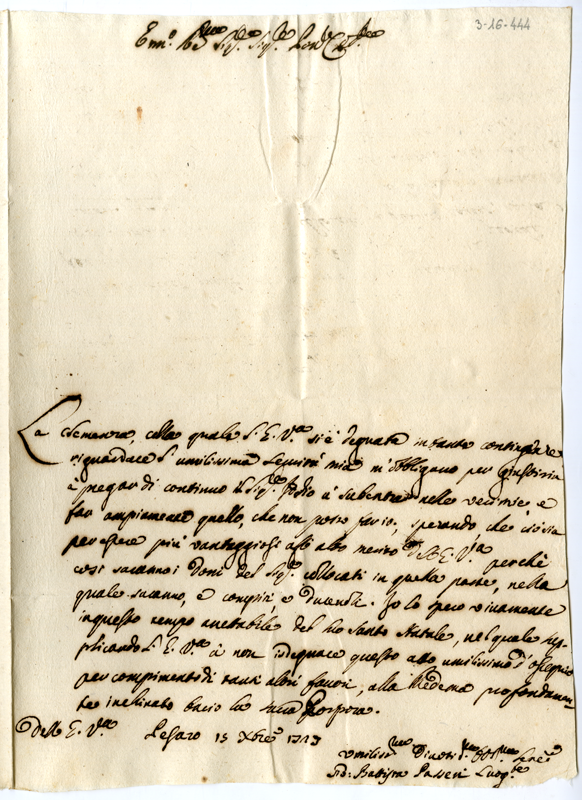 3-16-444
Em.o e R.mo Sig.re Sig.re Pad.ne Col.mo
La clemenza, colla quale l'E. V.a si è degnata in tante contingenze
riguardare l'umilissima servitù mia m'obbligano per giustizia
e pregar di continuo il Sig.re Iddio à subentrare nelle vecimie, e
far ampiamente quello, che non posso far io, sperando che ciò sia
per essere più vantaggioso all' alto merito dell'E. V.a perchè
così saranno i Doni del Sig.re collocati in quella parte, nella
quale saranno, e compiti e durevoli. Io lo spero vivamente
in questo tempo accettabile del suo Santo Natale, nel quale sup-
plicando l'E. V.a à non isdegnare questo atto umilissimo d'ossequio
per compimento di tanti altri favori, alla Medema profondamen-
te inclinato bacio la sacra Porpora.
Dell' E. V.a Pesaro 15 Xbre 1743
Umiliss.mo Divotis.mo Obb.mo Serv.e
Gio: Battista Passeri Luog.te